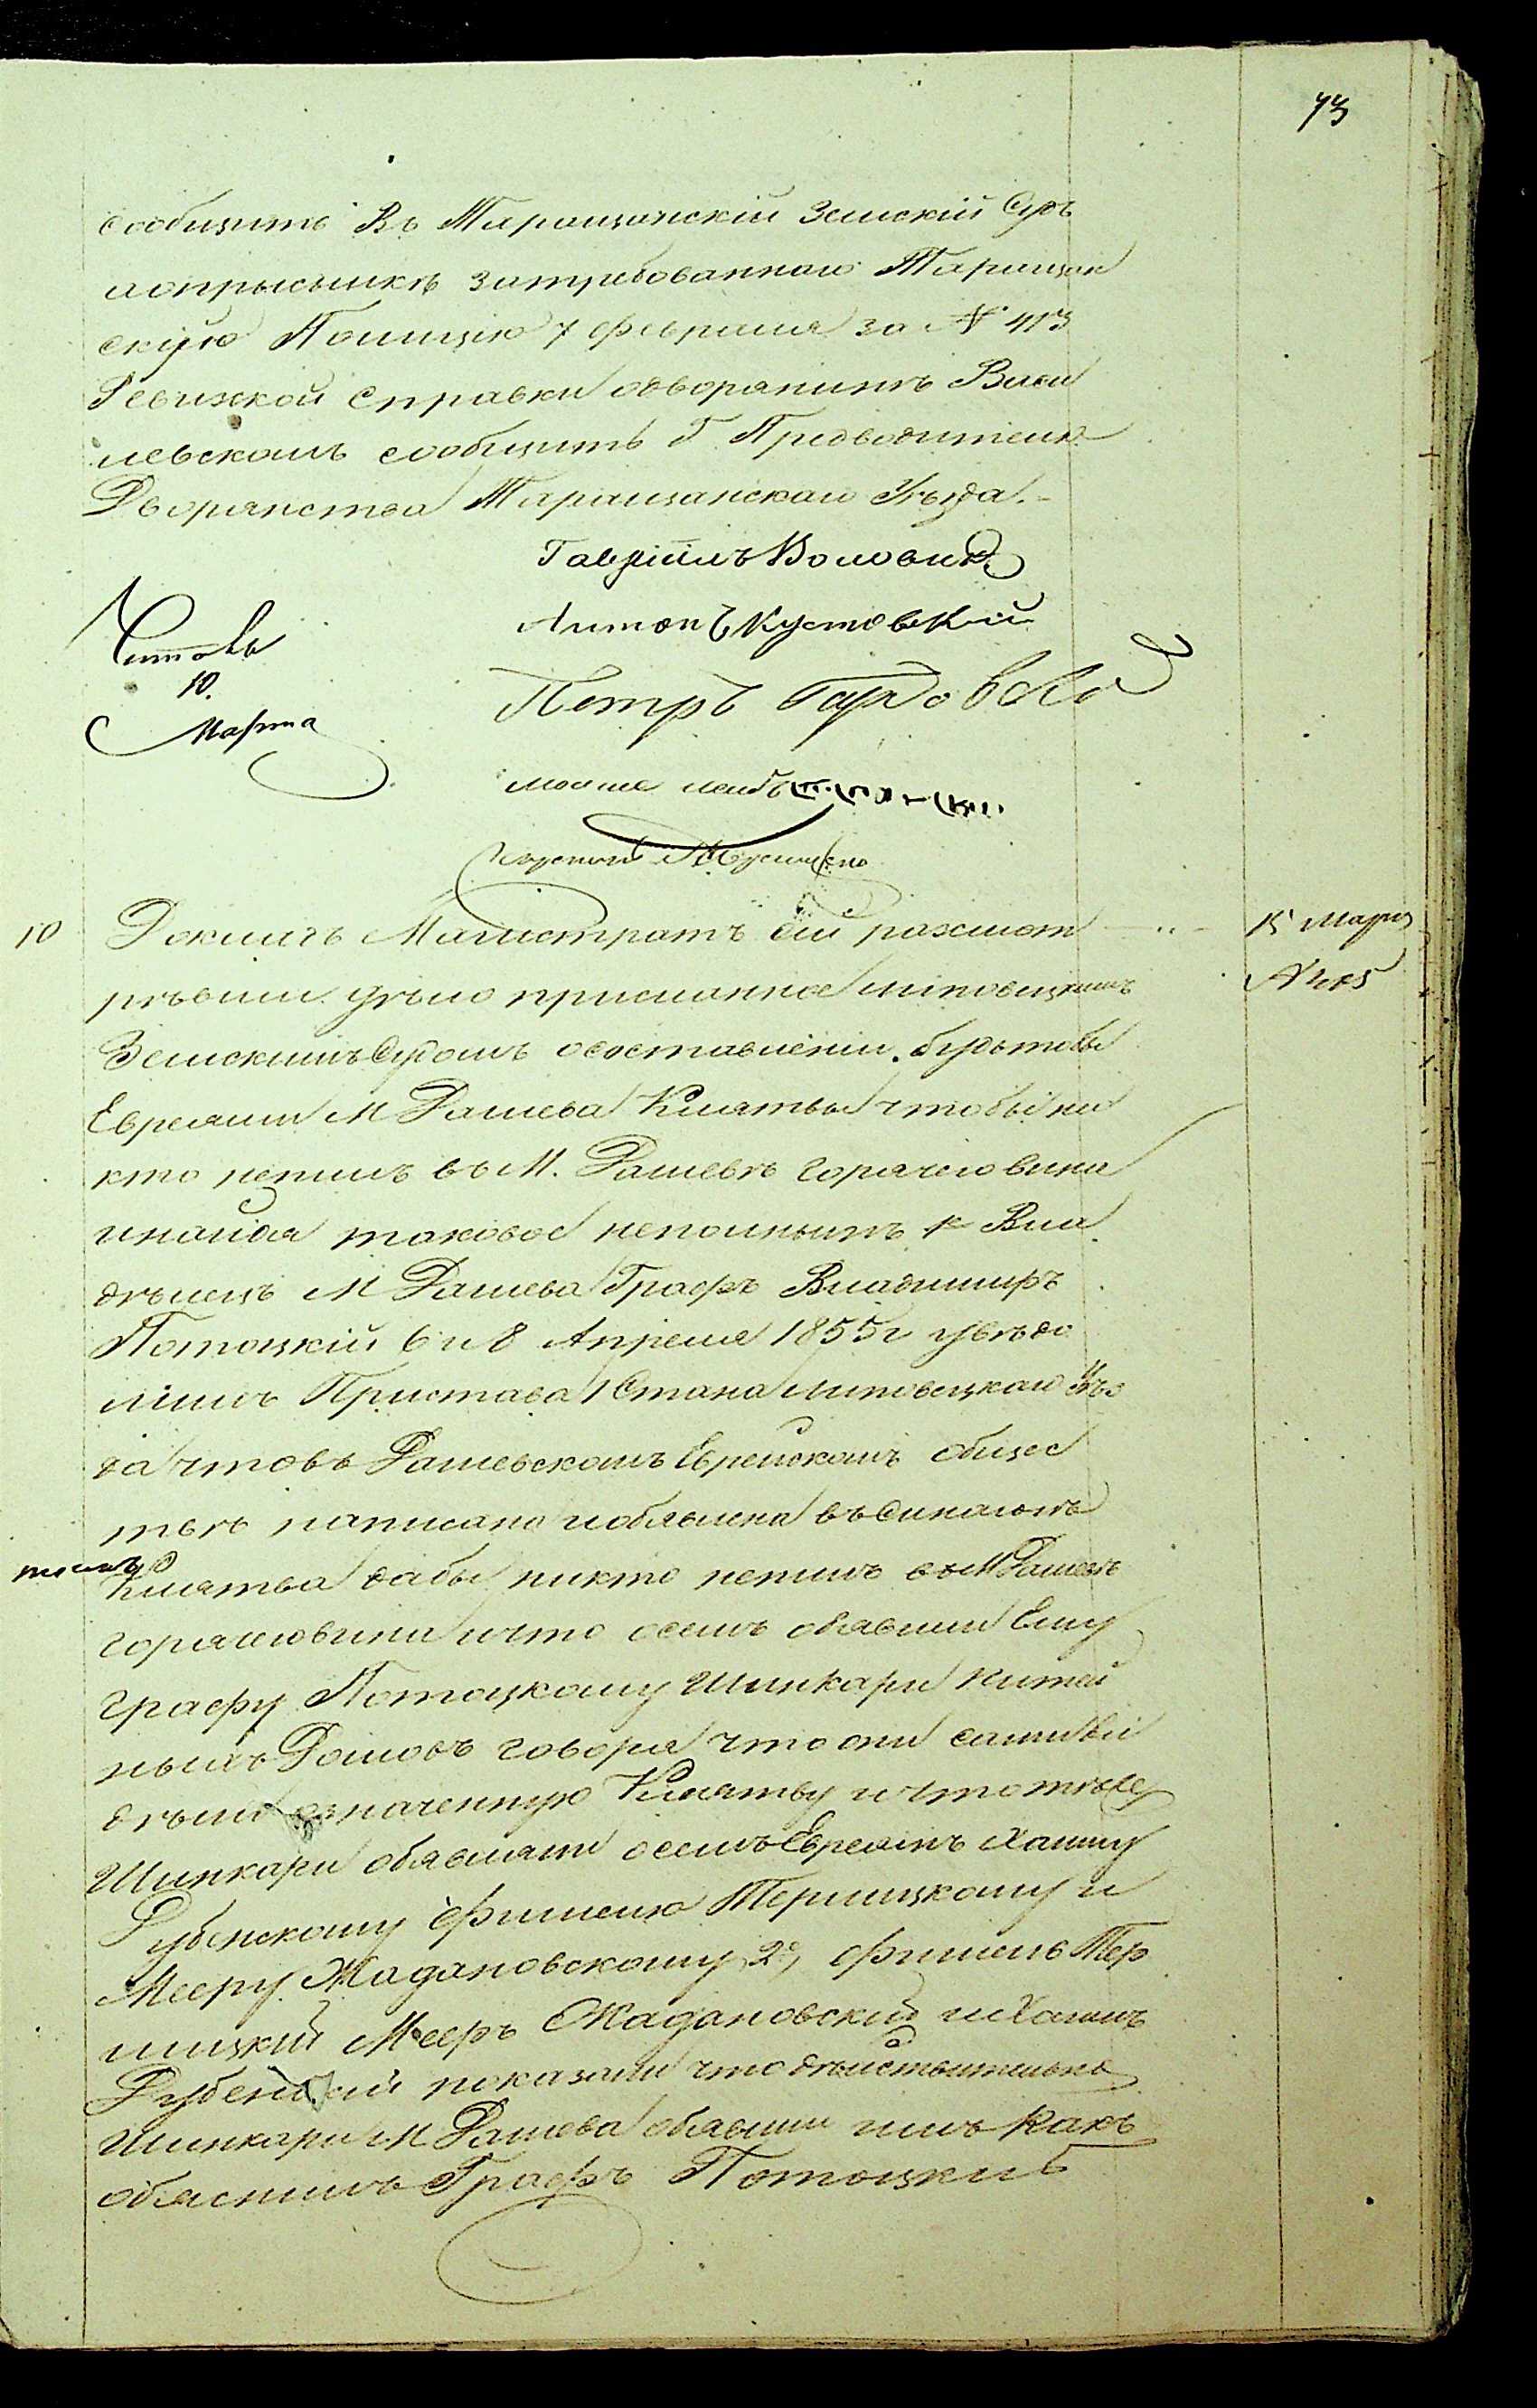 73
сообщить въ Таращанскій Земскій Судъ
затребованнаго Таращан
скую Полицію 7 февраля за № 413
Ревижкой справки одворянинѣ Васи
левскомъ сообщить Г. Предводителю
Дворянства Таращанскаго Уѣзда.
Гавріилъ Воловик
Антонъ Кустовскій
Петръ
Читалъ
10.
Марта
мошко лейбъ
10 Докладъ Магистратъ сей разсмот
рѣвши дѣло присланное липовецкимъ
Земскимъ Судомъ осоставленіи будьтобы
Евреями М Дашева Клятвы чтобы ни
кто непилъ въ М. Дашевѣ горячего вина
инайдя таковое неполнымъ Вла
дѣлецъ М Дашева Графъ Владимиръ
Потоцкій 6 и 8 Апреля 1855 г увѣдо
милъ Пристава 1 Стана липовецкаго уѣз
да чтовъ Дашевскомъ Еврейскомъ общес
твѣ написано иобявлена въсинагогѣ
Клятва дабы никто непилъ въ М Дашевѣ
горячговина ичто осемъ обявили Ему
графу Потоцкому Шинкари питей
ныхъ Домовъ говоря что они сами ви
дѣли означенную Клятву ичто тѣже
Шинкари обявляли осемъ Евреямъ Хаиму
Дубенскому Фишелю Терлицкому и
Мееру Жадановскому 2е, Фишель Тер
лицкій Мееръ Жадановскій и Хаимъ
Дубенскій показали что дѣйствительно
шинкари М Дашева обявили имъ какъ
обяснилъ Графъ Потоцкій
15 Марта